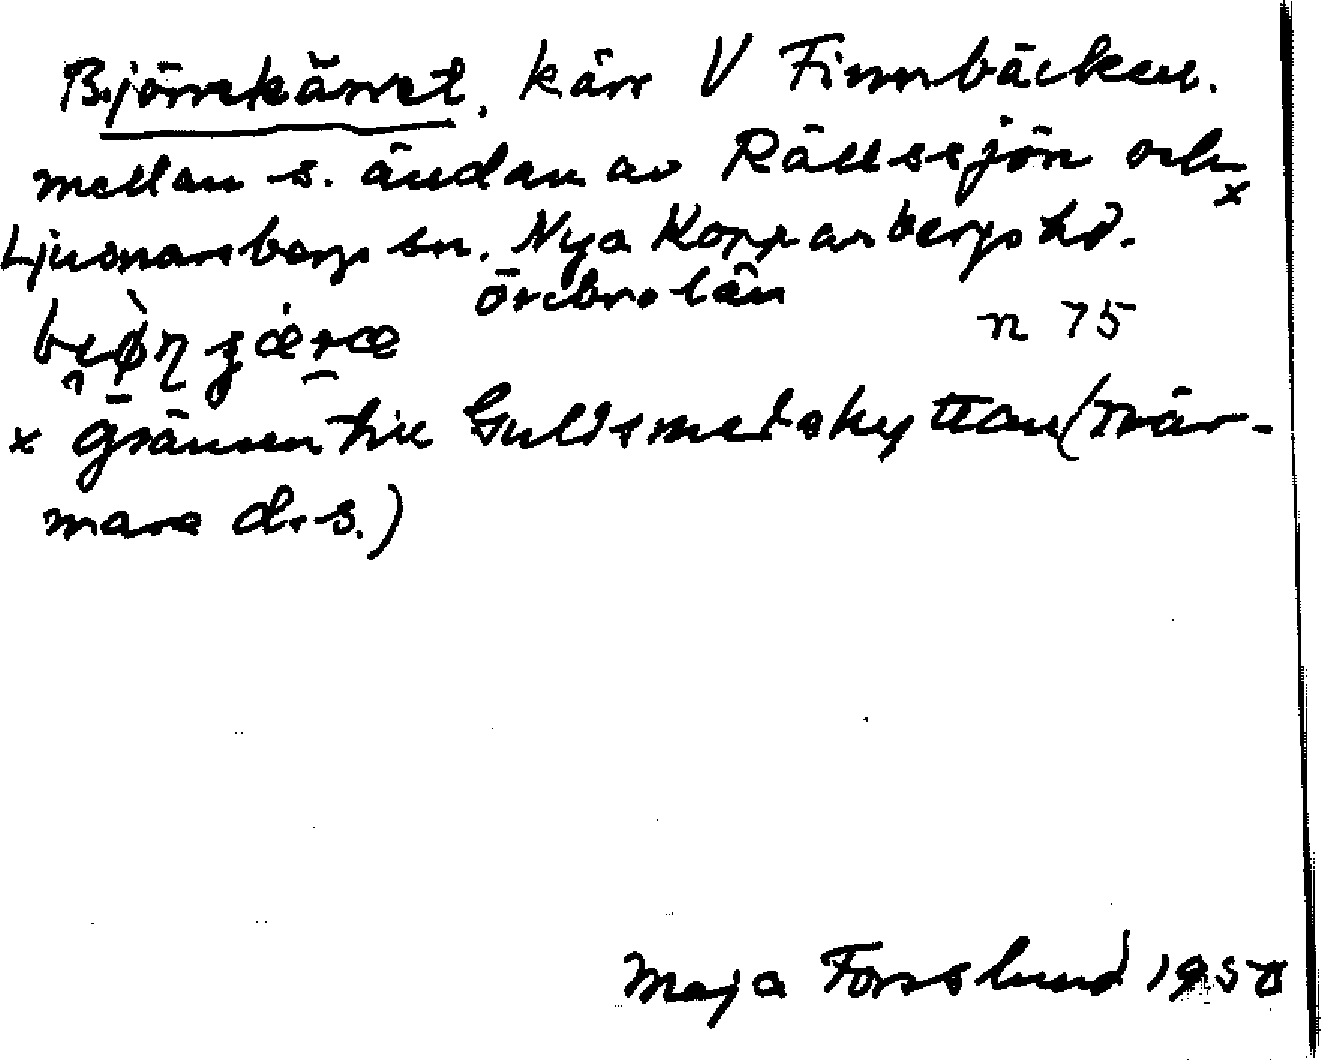 Björnkärret, kärr V Finnbäcken.
mellan s. ändan av Rällsjön och x
Ljusnarsbergs sn. Nya Kopparbergs hd.
Örebro län
n 75
x gränsen till Guldsmedshyttan (när-
mare d:s.)
Maja Forsslund 1950